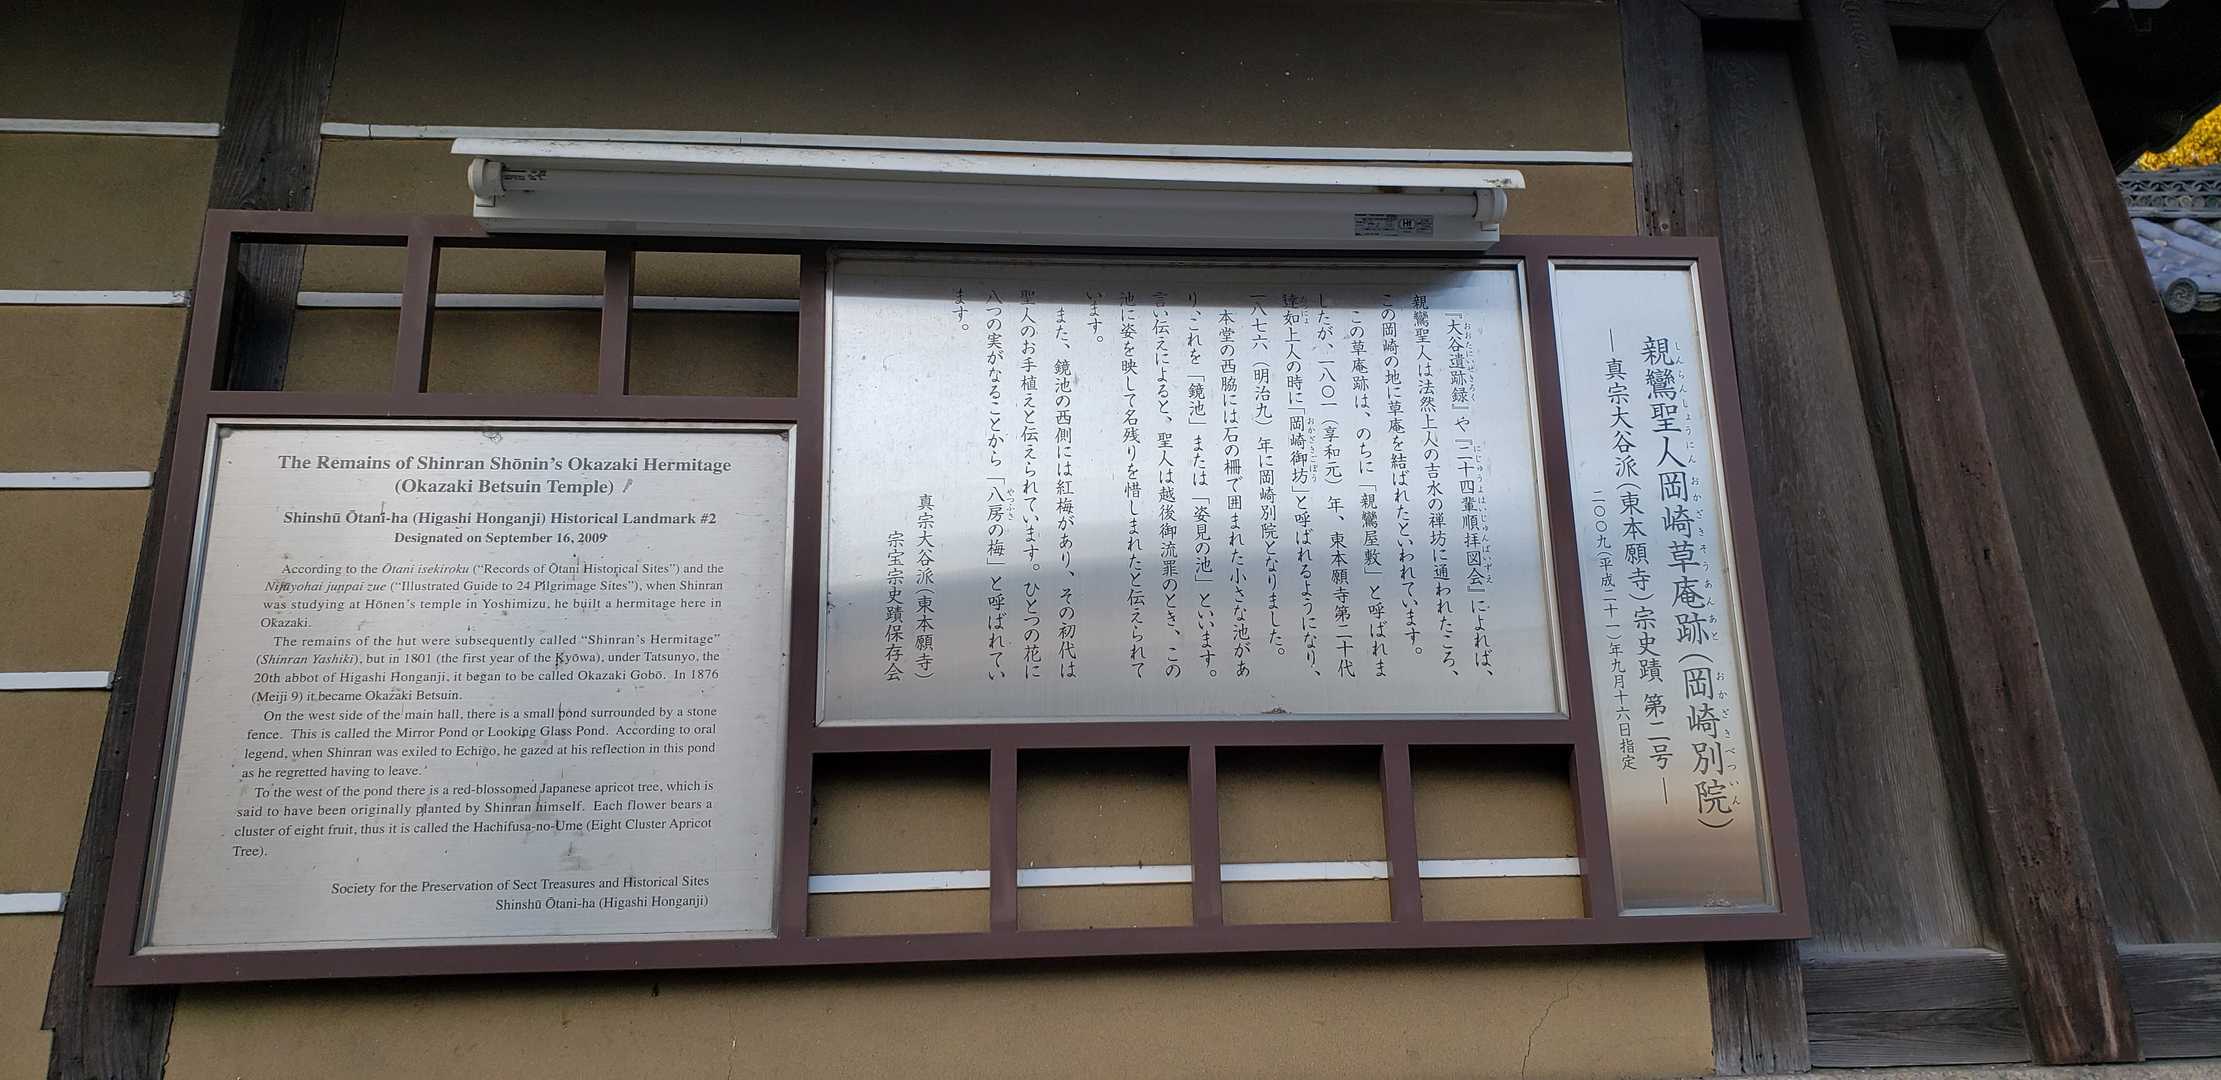 親鸞聖人岡崎草庵跡(岡崎別院)
しんらんしょうにん おかざきそうあんあと おかざきべついん
―真宗大谷派(東本願寺)宗史蹟 第二号―
二〇〇九(平成二十一)年九月十六日指定
『大谷遺跡録』や『二十四輩順拝図会』によれば、
親鸞聖人は法然上人の吉水の禅坊に通われたころ、
この岡崎の地に草庵を結ばれたといわれています。
この草庵跡は、のちに「親鸞屋敷」と呼ばれま
したが、一八〇一(享和元)年、東本願寺第二十代
達如上人の時に「岡崎御坊」と呼ばれるようになり、
一八七六(明治九)年に岡崎別院となりました。
本堂の西脇には石の柵で囲まれた小さな池があ
り、これを「鏡池」または「姿見の池」といいます。
言い伝えによると、聖人は越後御流罪のとき、この
池に姿を映して名残りを惜しまれたと伝えられて
います。
また、鏡池の西側には紅梅があり、その初代は
聖人のお手植えと伝えられています。ひとつの花に
八つの実がなることから「八房の梅」と呼ばれてい
ます。
真宗大谷派(東本願寺)
宗宝宗史蹟保存会
The Remains of Shinran Shōnin's Okazaki Hermitage
(Okazaki Betsuin Temple)
Shinshū Ōtani-ha (Higashi Honganji) Historical Landmark #2
Designated on September 16, 2009
According to the Ōtani isekiroku ("Records of Ōtani Historical Sites") and the
Nijūyohai junpai zue ("Illustrated Guide to 24 Pilgrimage Sites"), when Shinran
was studying at Hōnen's temple in Yoshimizu, he built a hermitage here in
Okazaki.
The remains of the hut were subsequently called "Shinran's Hermitage"
(Shinran Yashiki), but in 1801 (the first year of the Kyōwa), under Tatsunyo, the
20th abbot of Higashi Honganji, it began to be called Okazaki Gobō. In 1876
(Meiji 9) it became Okazaki Betsuin.
On the west side of the main hall, there is a small pond surrounded by a stone
fence. This is called the Mirror Pond or Looking Glass Pond. According to oral
legend, when Shinran was exiled to Echigo, he gazed at his reflection in this pond
as he regretted having to leave.
To the west of the pond there is a red-blossomed Japanese apricot tree, which is
said to have been originally planted by Shinran himself. Each flower bears a
cluster of eight fruit, thus it is called the Hachifusa-no-Ume (Eight Cluster Apricot
Tree).
Society for the Preservation of Sect Treasures and Historical Sites
Shinshū Ōtani-ha (Higashi Honganji)